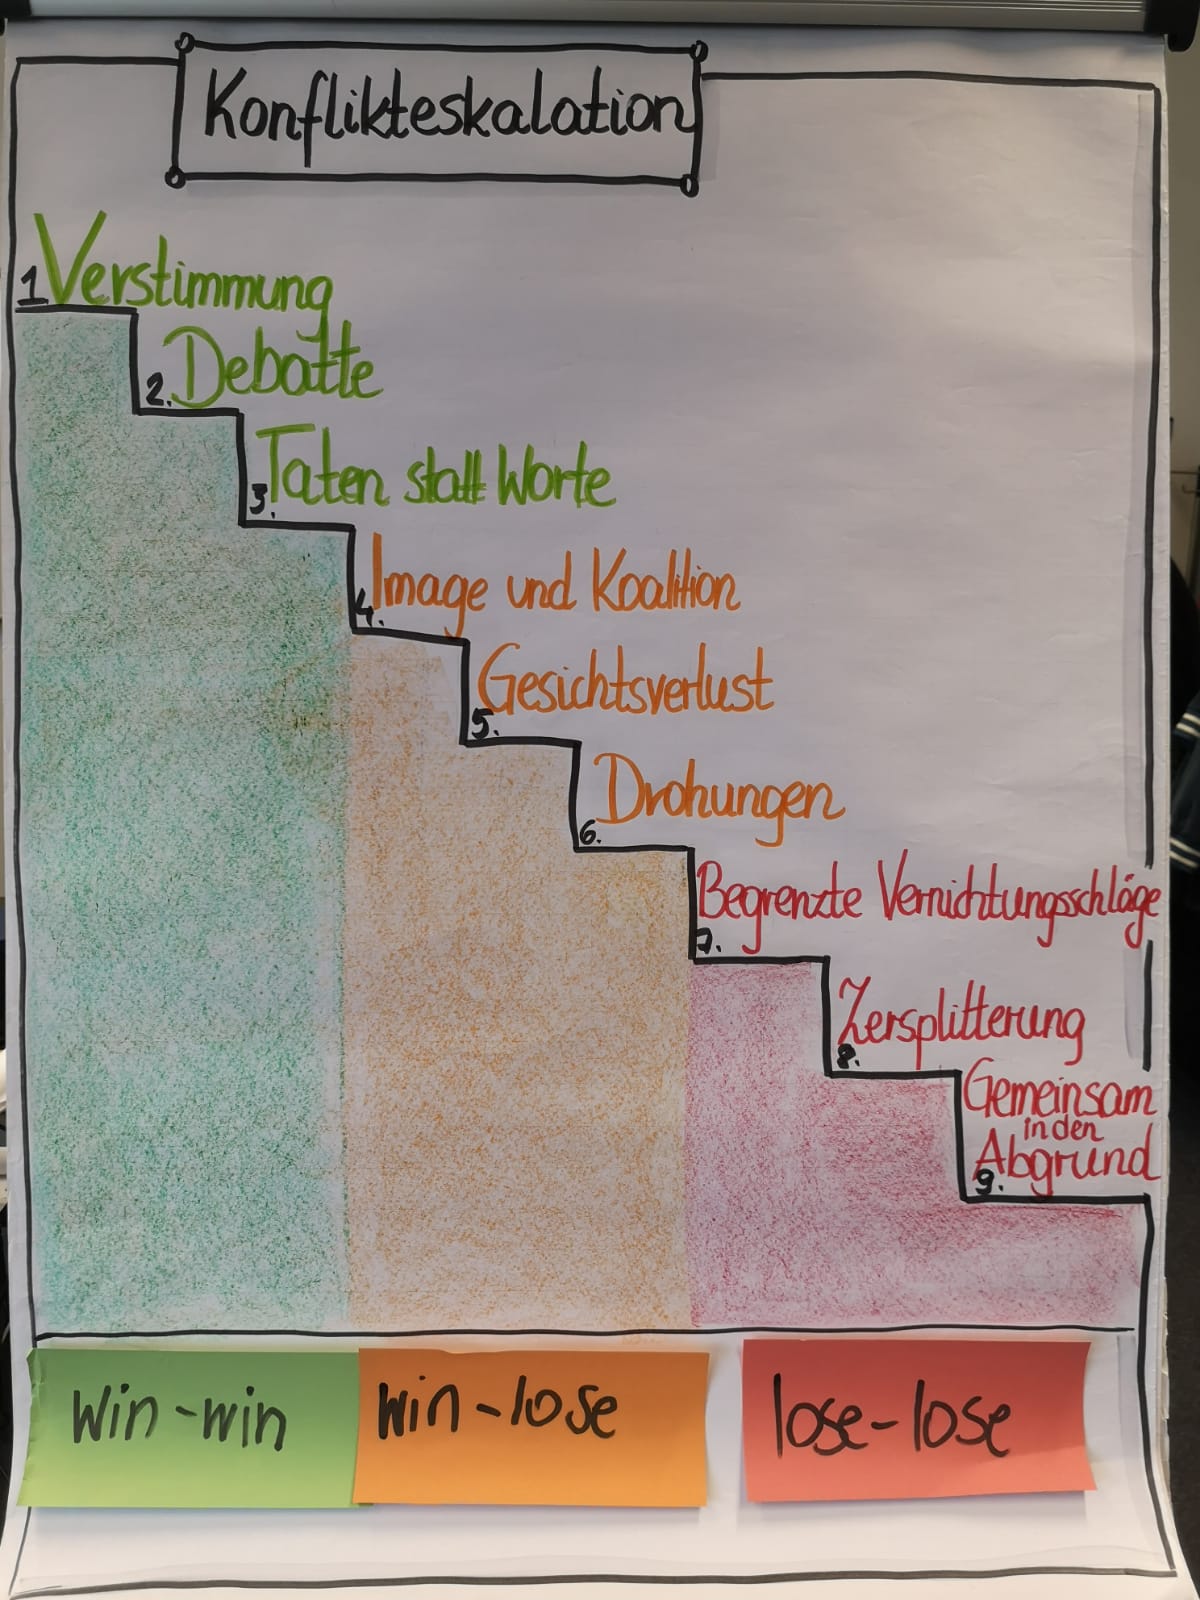 Konflikteskalation
1 Verstimmung
2. Debatte
3. Taten statt Worte
4. Image und Koalition
5. Gesichtsverlust
6. Drohungen
7. Begrenzte Vernichtungsschläge
8. Zersplitterung
9. Gemeinsam
in den
Abgrund
win-win
win-lose
lose-lose